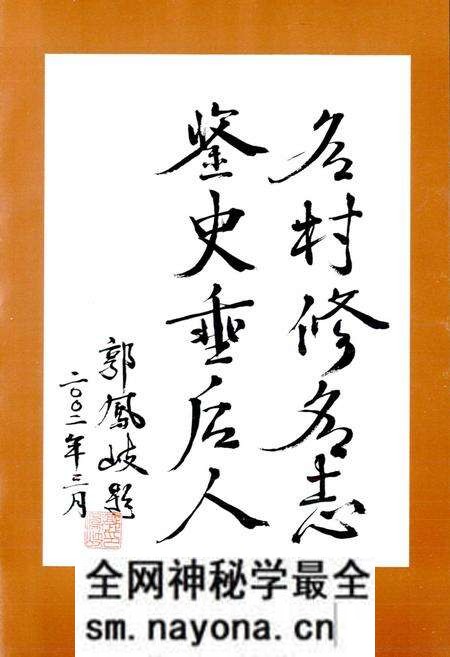 名村修名志
鉴史垂后人
郭凤岐题
二〇〇二年三月
全网神秘学最全
sm.nayona.cn